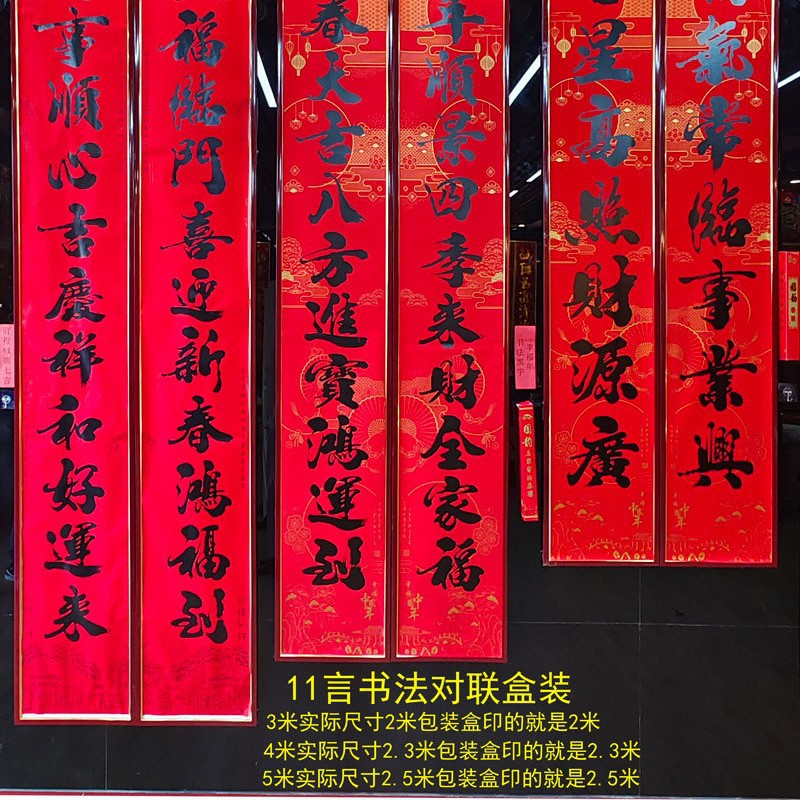 事順心吉慶祥和好運来
福臨門喜迎新春鴻福到
春天吉八方進寶鴻運到
年順景四季来財全家福
星高照財源廣
氣常臨事業興
幸福年
书法黑字
11言书法对联盒装
3米实际尺寸2米包装盒印的就是2米
4米实际尺寸2.3米包装盒印的就是2.3米
5米实际尺寸2.5米包装盒印的就是2.5米